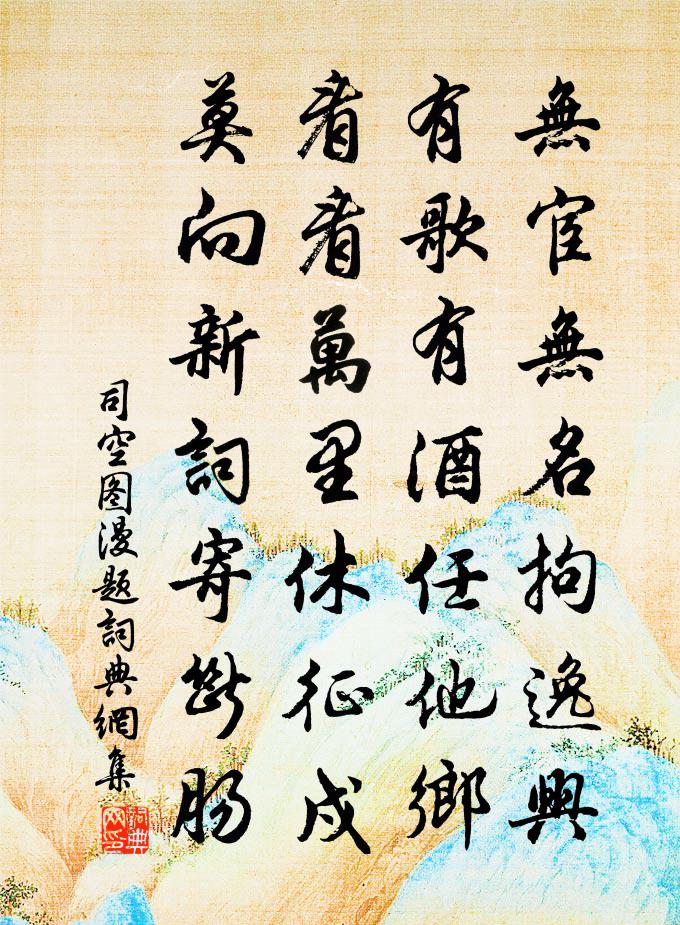 無宦無名拘逸興
有歌有酒任他鄉
看看萬里休征戍
莫向新詞寄斷腸
司空图漫题詞典網集
詞典网印